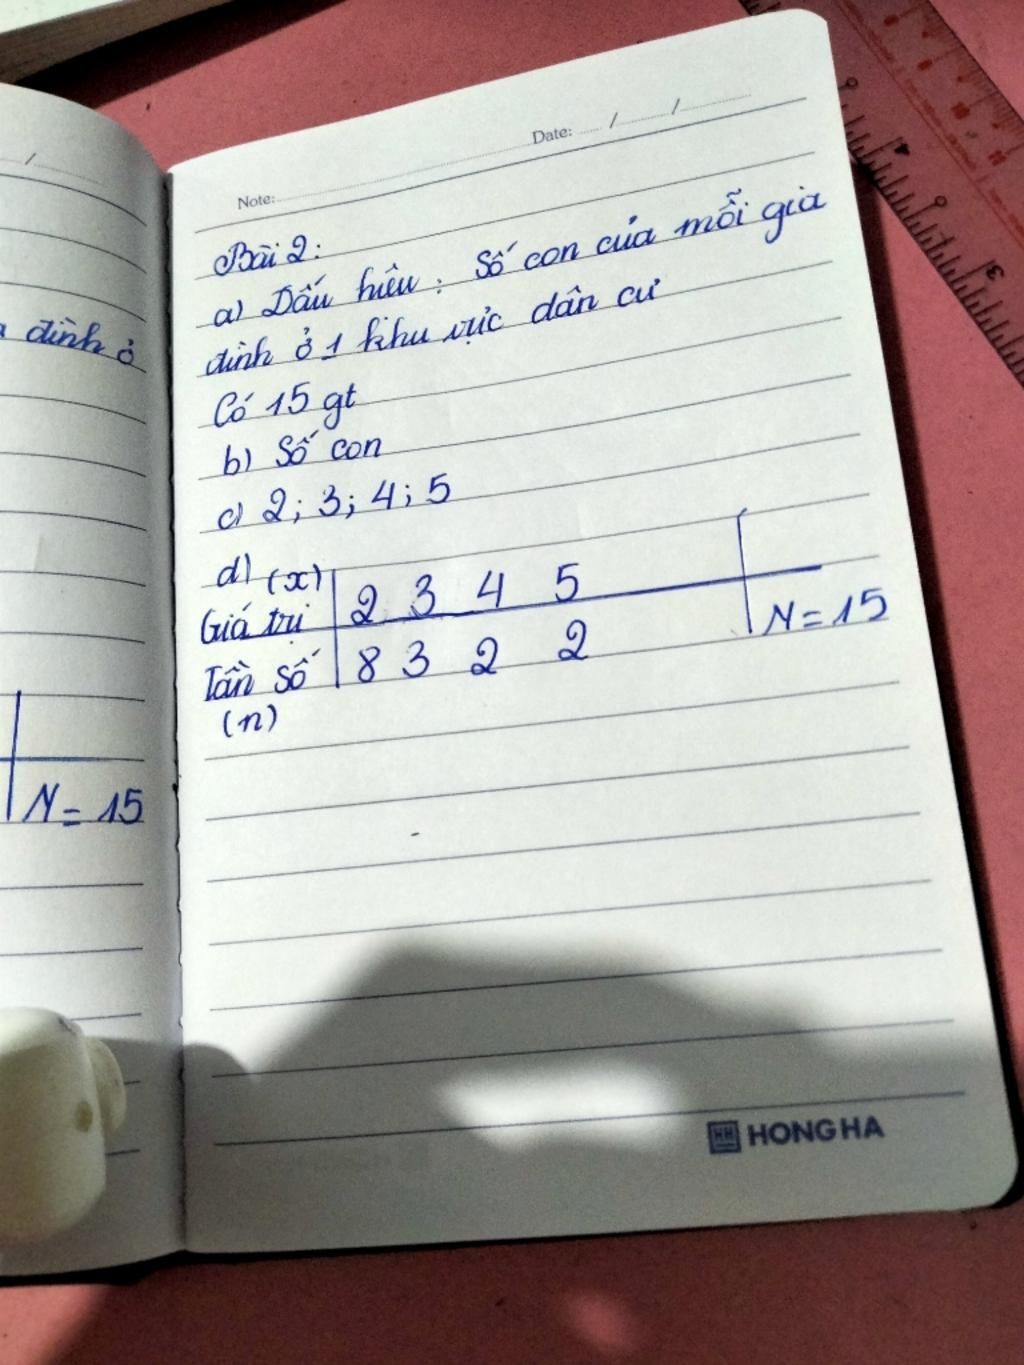 Note:
Date: / /
Bài 2:
a) Dấu hiệu: Số con của mỗi gia
đình ở 1 khu vực dân cư
Có 15 gt
b) Số con
c) 2; 3; 4; 5
d) (x)
Giá trị 2 3 4 5
Tần số 8 3 2 2 N = 15
(n)
HONG HA
/
đình ở
N = 15